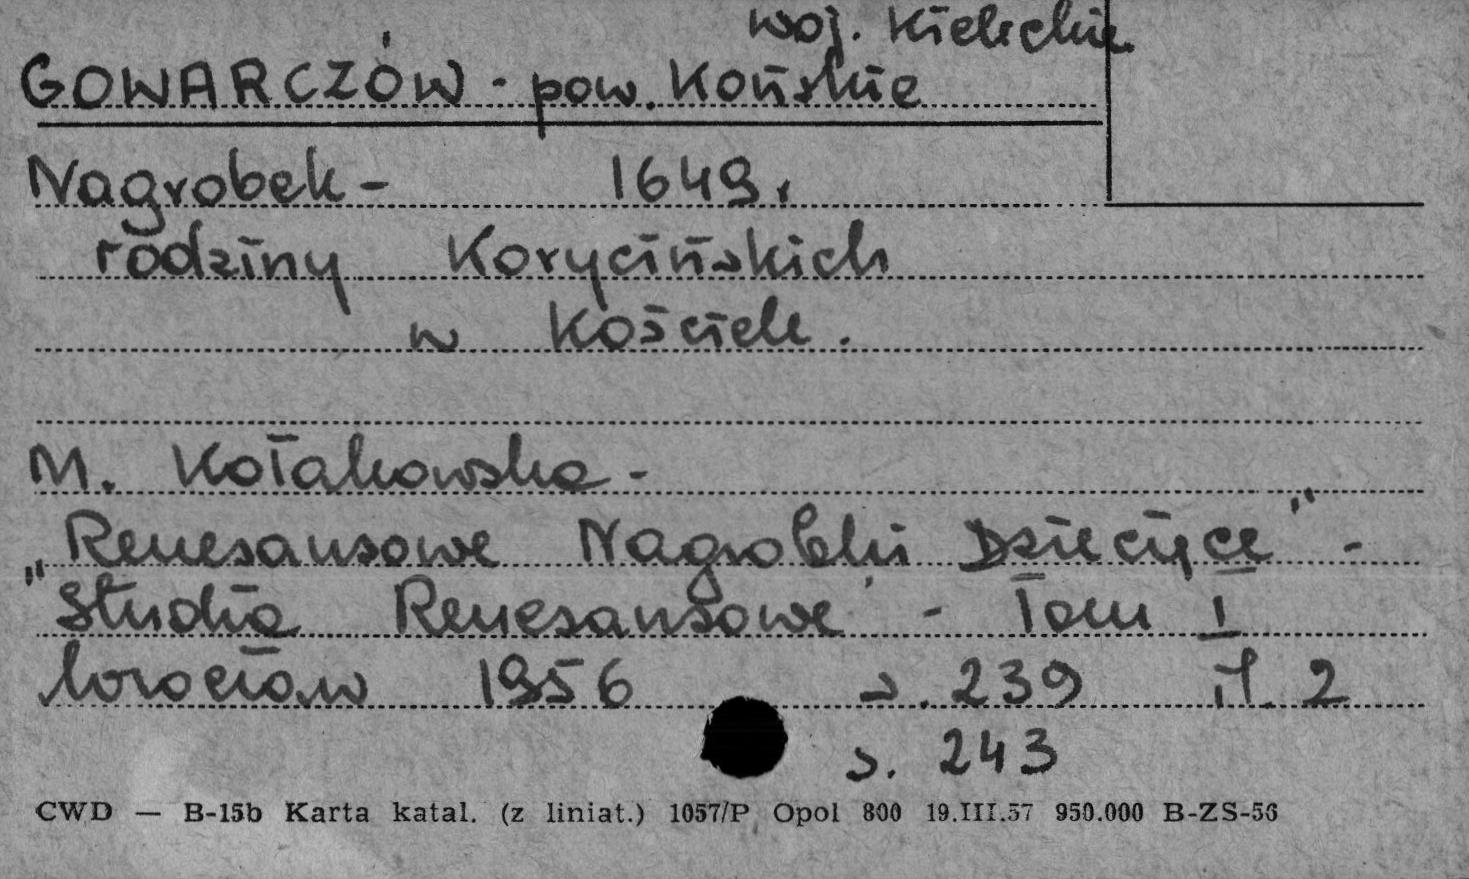 woj. Kieleckie.
GOWARCZÓW - pow. Końskie
Nagrobek - 1649 r
rodziny Korycińskich
w Kościele.
M. Kołakowska -
"Renesansowe Nagrobki Dziecięce" -
"Studia Renesansowe" - Tom I
Wrocław 1956 s. 239 il. 2
s. 243
CWD — B-15b Karta katal. (z liniat.) 1057/P Opol 800 19.III.57 950.000 B-ZS-56